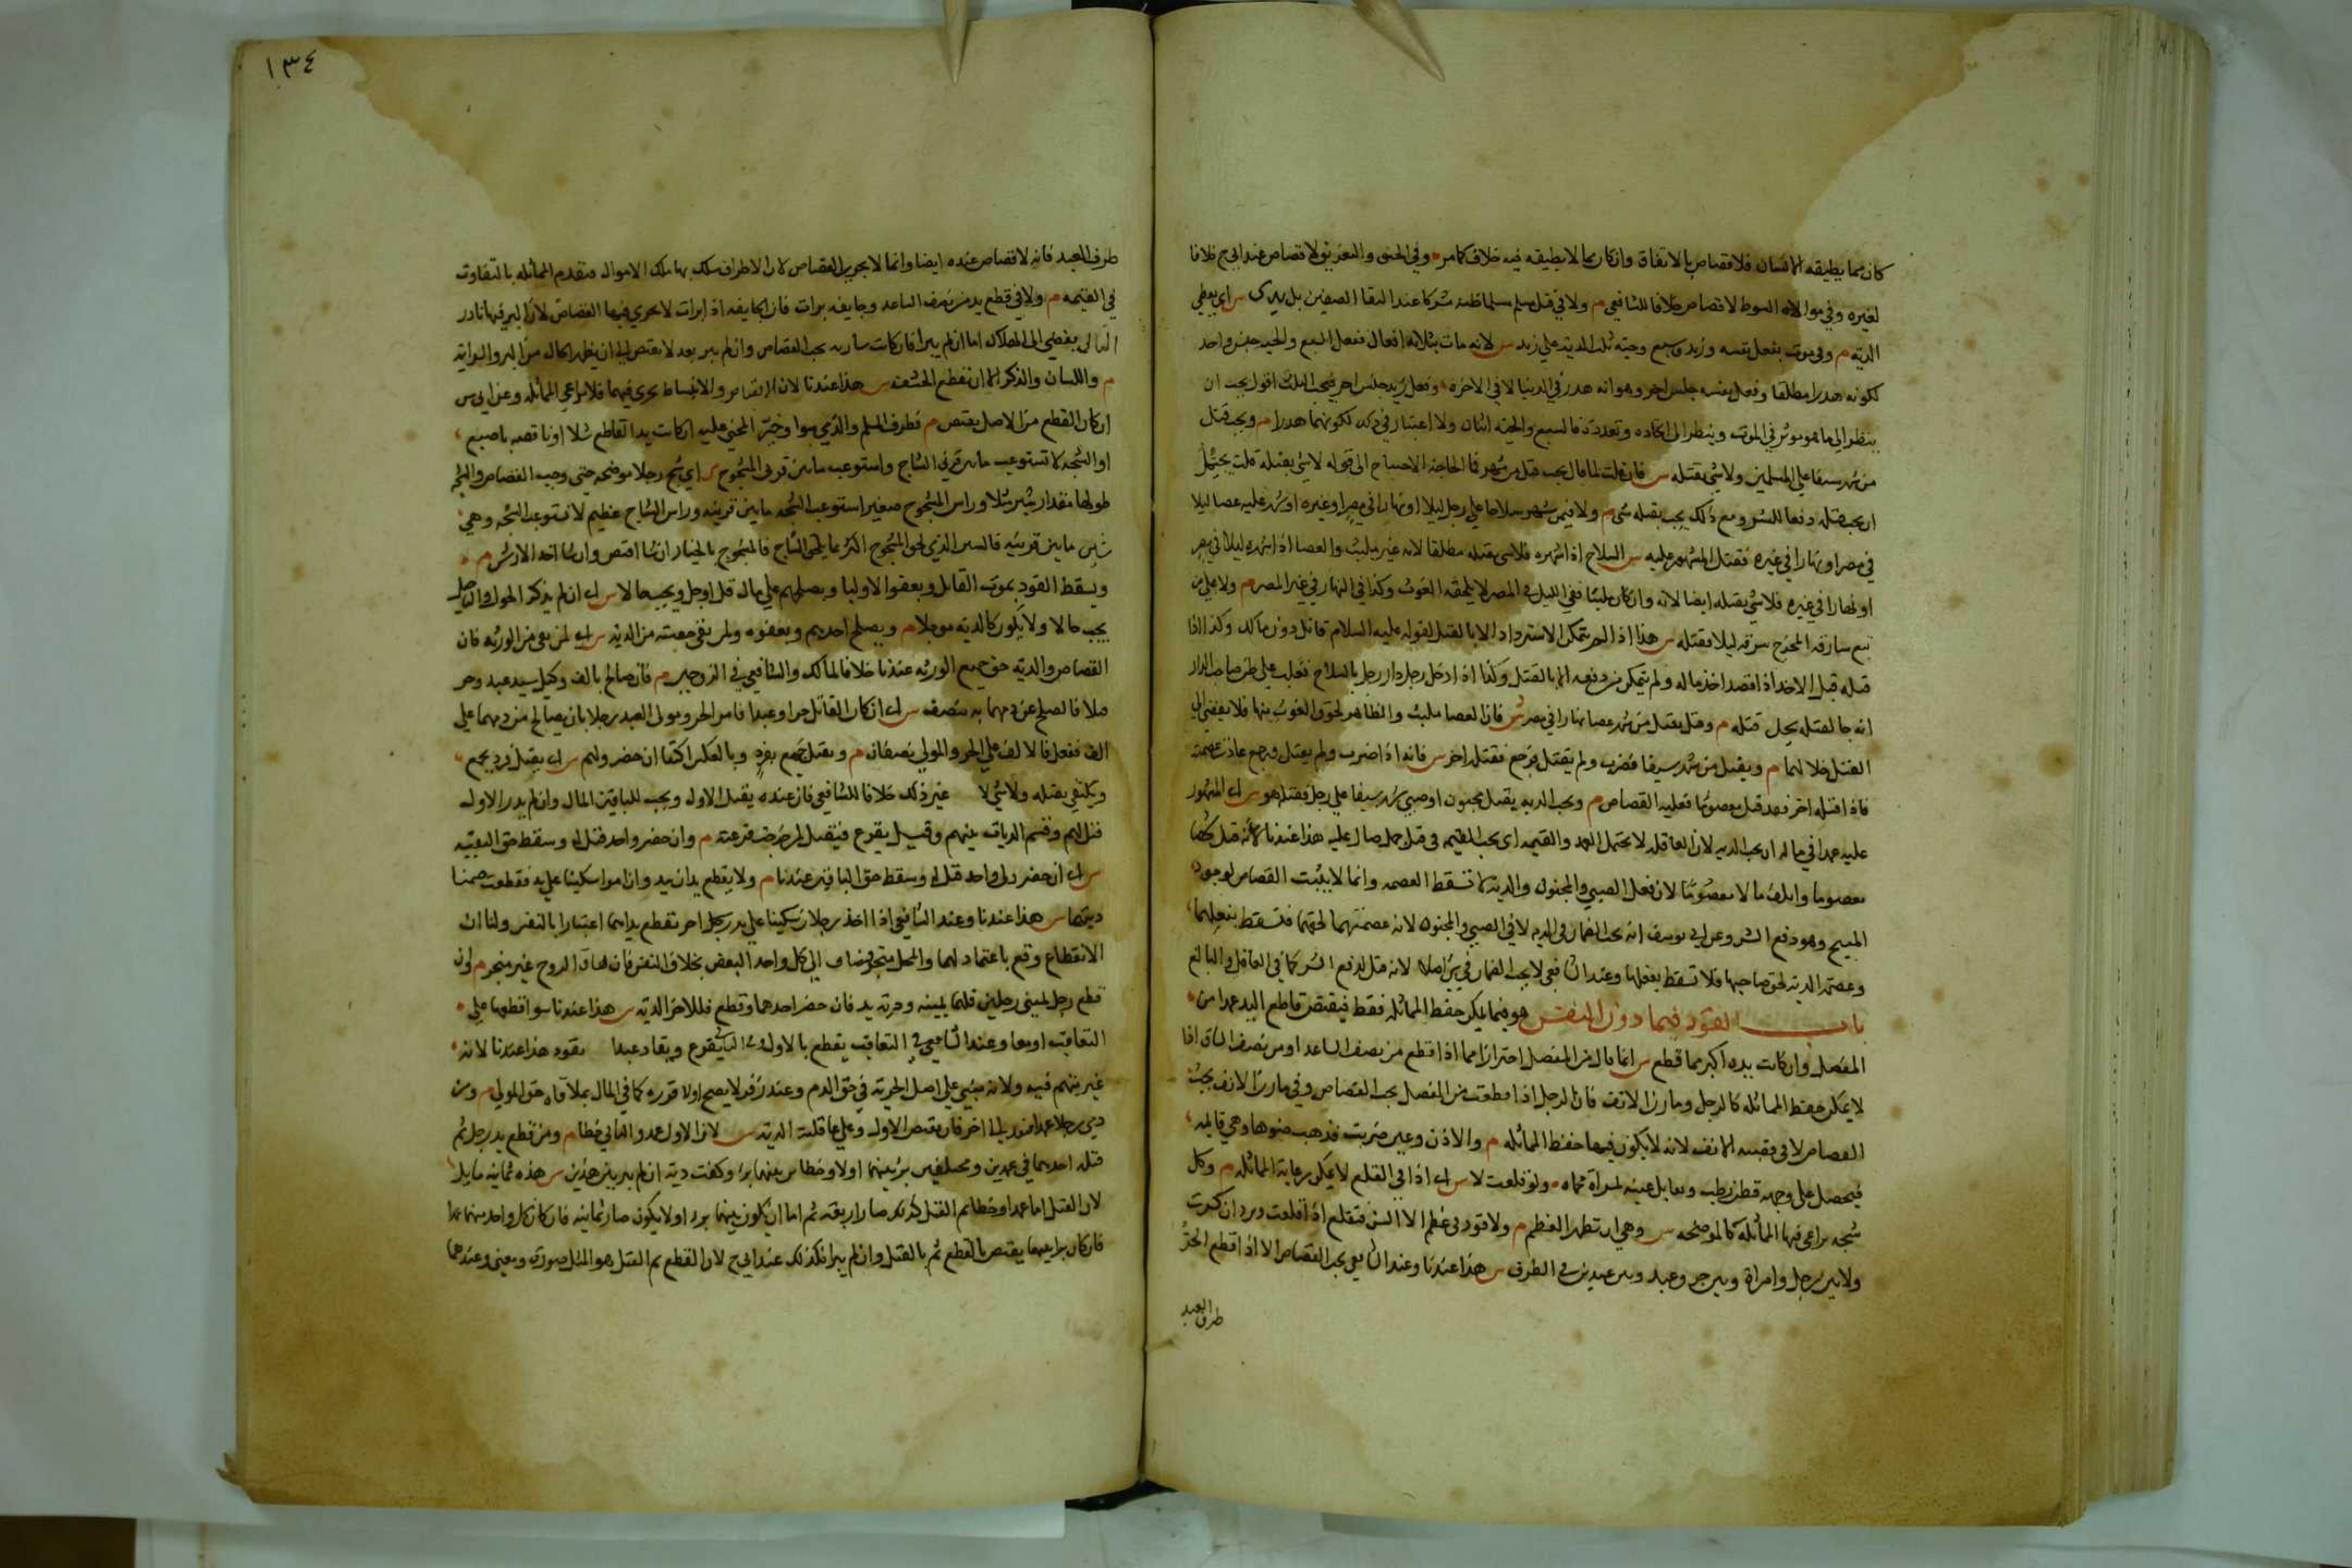 كان مما يطيقه الانسان فلا قصاص بالاتفاق وان كان مما لا يطيقه فيه خلاف كما مر وفي الخنق والتغريق لا قصاص عند ابي ح خلافا
لغيره وفي موالاة السوط لا قصاص خلافا للشافعي م ولا في قتل مسلم مسلما ظنه مشركا عند التقا الصفين بل يدى س اي يعطي
الدية م وفي موت بفعل نفسه وزيد وسبع وحية ثلث الدية على زيد س لانه مات بثلاثة افعال ففعل السبع والحية جنس واحد
لكونه هدرا مطلقا وفعل نفسه جنس اخر وهو انه هدر في الدنيا لا في الاخرة وفعل زيد جنس اخر فيجب الثلث اقول يجب ان
ينظر الى ما هو موثر في الموت وينظر الى اتحاده وتعدده فالسبع والحية اثنان ولا اعتبار في ذلك لكونهما هدرا م ويجب قتل
من شهر سيفا على المسلمين ولا شي بقتله س فان قلت لما قال يجب قتل من شهر فما الحاجة الى قوله لا شي بقتله قلت يحتمل
ان يجب قتله دفعا للشر ومع ذلك يجب بقتله شي م ولا فيمن شهر سلاحا على رجل ليلا او نهارا في مصر او غيره او شهر عليه عصا ليلا
في مصر او نهارا في غيره فقتله المشهور عليه س السلاح اذا اشهره فلا شي بقتله مطلقا لانه غير ملبث والعصا اذا اشهره ليلا في مصر
او نهارا في غيره فلا شي بقتله ايضا لانه وان كان ملبثا ففي الليل في المصر لا يلحقه الغوث وكذا في النهار في غير المصر م ولا على من
تبع سارقه المخرج سرقه ليلا فقتله س هذا اذا لم يتمكن الاسترداد الا بالقتل لقوله عليه السلام قاتل دون مالك وكذا اذا
قتله قبل الاخذ اذا قصد اخذ ماله ولم يتمكن من دفعه الا بالقتل وكذا اذا دخل رجل دار رجل بالسلاح فغلب على ظن صاحب الدار
انه جا لقتله يحل قتله م وقتل بقتل من شهر عصا نهارا في مصر س فان العصا ملبث والظاهر لحوق الغوث نهارا فلا يفضي الى
القتل خلافا لهما م ويقتل من شهر سيفا فضرب ولم يقتل فرجع فقتله اخر س فانه اذا ضرب ولم يقتل ورجع عادت عصمته
فاذا قتله اخر فقد قتل معصوما فعليه القصاص م ويجب الدية بقتل مجنون او صبي شهر سيفا على رجل فقتله هو س اي المشهور
عليه عمدا في ماله اي يجب الدية لان العاقلة لا تحتمل العمد والقيمة اي يجب القيمة في قتل جمل صال عليه هذا عندنا لانه قتل شخصا
معصوما واتلف مالا معصوما لان فعل الصبي والمجنون والدابة لا تسقط العصمة وانما لا يثبت القصاص لوجود
المبيح وهو دفع الشر وعن ابي يوسف انه يجب الضمان في الدابة لا في الصبي والمجنون لان عصمتهما لحقهما فتسقط بفعلهما
وعصمة الدابة لحق صاحبها فلا تسقط بفعلها وعند الشافعي لا يجب الضمان في شي اصلا لانه قتل لدفع الشر كما في العاقل والبالغ
باب القود فيما دون النفس هو فيما يمكن حفظ المماثلة فقط فيقتص قاطع اليد عمدا من
المفصل وان كانت يده اكبر مما قطع س انما قال من المفصل احترازا عما اذا قطع من نصف الساعد او من نصف الساق اذا
لا يمكن حفظ المماثلة كالرجل ومارن الانف فان الرجل اذا قطعت من المفصل يجب القصاص وفي مارن الانف يجب
القصاص لا في قصبة الانف لانه لا يكون فيها حفظ المماثلة م والاذن وعين ضربت فذهب ضوءها وهي قايمة
فيجعل على وجهه قطن رطب ويقابل عينه بمرآة محماة ولو قلعت لا س اي اذا في القلع لا يمكن رعاية المماثلة م وكل
شجة يراعى فيها المماثلة كالموضحة س وهي ان تظهر العظم م ولا قود في عظم الا السن فتقلع اذا قلعت وبرد ان كسرت
ولا بين رجل وامراة وبين حر وعبد وبين عبدين في الطرف س هذا عندنا وعند الشافعي يجب القصاص الا اذا قطع الحر
طرف العبد
١٣٤
طرف العبد فانه لا قصاص عنده ايضا وانما لا يجري القصاص لان الاطراف يسلك بها مسلك الاموال فتقدم المماثلة بالتفاوت
في القيمة م ولا في قطع يد من نصف الساعد وجايفة برات فان الجايفة اذا برات لا يجري فيها القصاص لان البر فيها نادر
الثاني يفضي الى الهلاك اما ان لم يبرا فان كانت سارية يجب القصاص وان لم يسر بعد لا يقتص الى ان يظهر الحال من البر والسراية
م واللسان والذكر الا ان تقطع الحشفة س هذا عندنا لان الانقباض والانبساط يجري فيهما فلا يراعى المماثلة وعن ابي يوس
ان كان القطع من الاصل يقتص م وطرف المسلم والذمي سوا وخير المجني عليه ان كانت يد القاطع شلا او ناقصة باصبع
او الشجة لا تستوعب ما بين قرني الشاج واستوعب ما بين قرني المشجوج س اي شج رجلا موضحة حتى وجب القصاص والشجة
طولها مقدار شبر مثلا وراس المشجوج صغير استوعب الشجة ما بين قرنيه وراس الشاج عظيم لا تستوعب الشجة وهي
شبر ما بين قرنيه فالشين الذي لحق المشجوج اكثر مما يلحق الشاج فالمشجوج بالخيار ان شا اقتص وان شا اخذ الارش م
ويسقط القود بموت القاتل وبعفو الاوليا وبصلحهم على مال قل او جل ويجب حالا س اي ان لم يذكر الحلول والتاجيل
يجب حالا ولا يكون كالدية موجلا م وبصلح احدهم وبعفوه ولمن بقي حصته من الدية س اي لمن بقي من الورثة فان
القصاص والدية حق جميع الورثة عندنا خلافا لمالك والشافعي في الزوجين م فان صالح بالف وكيل سيد عبد وحر
قتلا فالصلح عن دمهما به بنصف س اي ان كان القاتل حرا وعبدا فامر الحر ومولى العبد رجلا بان يصالح من دمهما على
الف ففعل فالالف على الحر والمولى نصفان م ويقتل جمع بفرد وبالعكس اكتفا ان حضر وليهم س اي يقتل فرد بجمع
ويكتفي بقتله ولا شي لا غير ذلك خلافا للشافعي فان عنده يقتل الاول ويجب للباقين المال وان لم يدر الاول
قتل لهم وقسم الديات بينهم وقيل يقرع فيقتل لمن خرجت قرعته م وان حضر واحد قتل له وسقط حق البقية
س اي ان حضر ولي واحد قتل له وسقط حق الباقين عندنا م ولا يقطع يدان بيد وان امرا سكينا على يد فقطعت ضمنا
ديتها س هذا عندنا وعند الشافعي اذا اخذ رجلان سكينا على يد رجل اخر تقطع يداهما اعتبارا بالنفس ولنا ان
الانقطاع وقع باعتمادهما والمحل متجز فيضاف الى كل واحد البعض بخلاف النفس فان زهاق الروح غير متجز م وان
قطع رجل يميني رجلين فلهما يمينه ودية يد فان حضر احدهما وقطع فللاخر الدية س هذا عندنا سوا قطعهما على
التعاقب او معا وعند الشافعي في التعاقب يقطع بالاول وفي القران يقرع ويقاد عبد بقود هذا عندنا لانه
غير متهم فيه ولانه مبني على اصل الحرية في حق الدم وعند زفر لا يصح اقراره كما في المال بملاقاة حق المولى م ومن
رمى رجلا عمدا فنفذ الى اخر فمات يقتص للاول وعلى عاقلته الدية س لان الاول عمد والثاني خطا م ومن قطع يد رجل ثم
قتله اخذ بهما في عمدين ومختلفين برئ بينهما او لا وخطاين بينهما برء وكفت دية ان لم يبرا بين هذين س هذه ثمانية مسايل
لان القطع اما عمدا او خطا ثم القتل كذلك صار اربعة ثم اما ان يكون بينهما برء او لا يكون صار ثمانية فان كان كل واحد منهما عمدا
فان كان برا بينهما يقتص بالقطع ثم بالقتل وان لم يبرا فكذلك عند ابي ح لان القطع ثم القتل هو المثل صورة ومعنى وعندهما